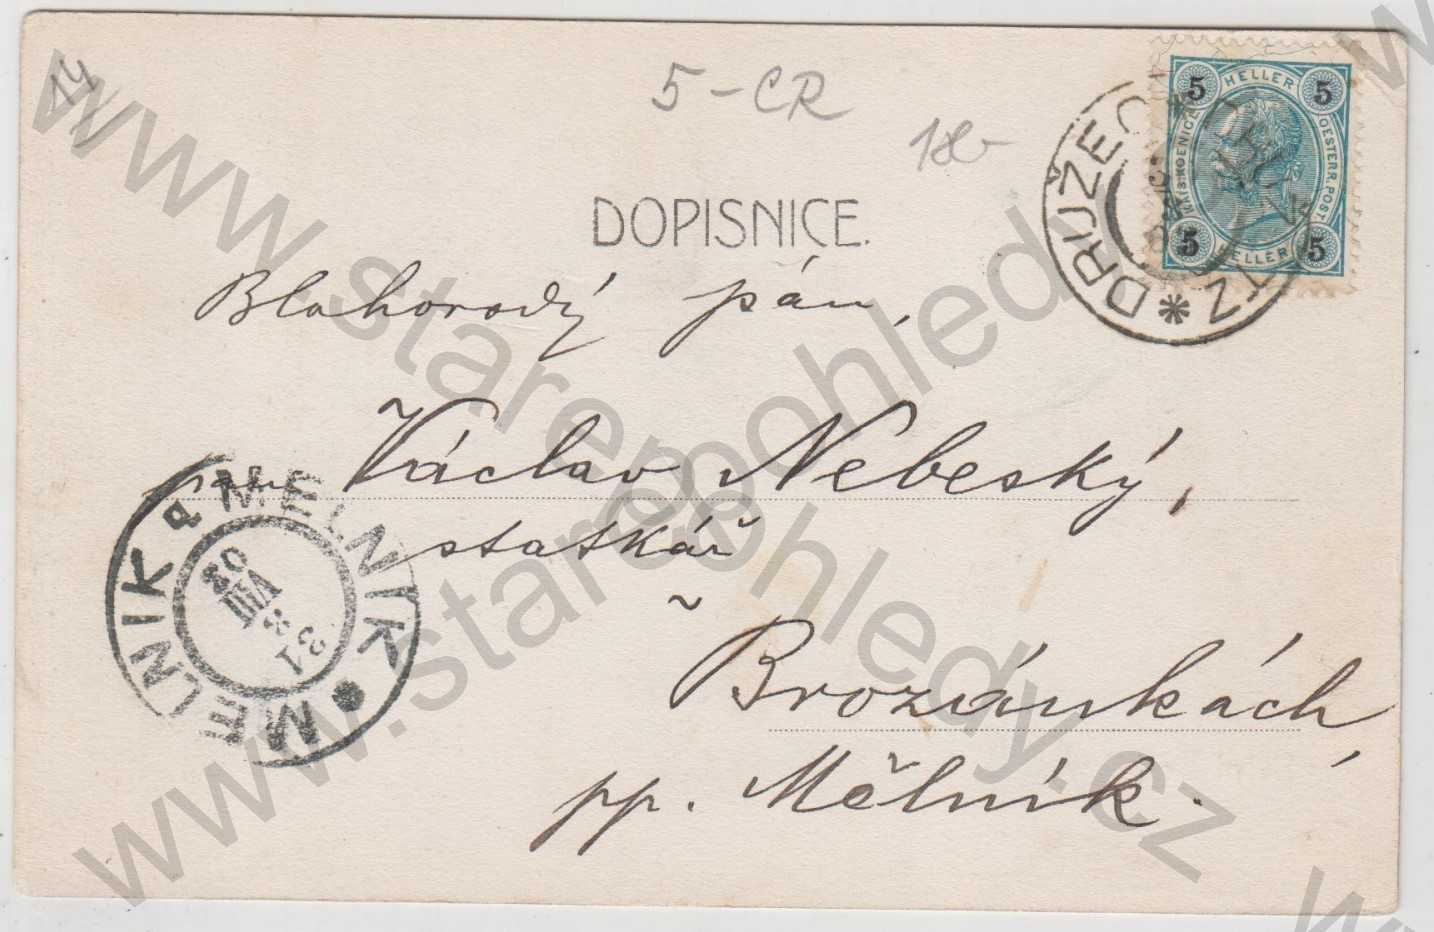 5-CR
180-
DOPISNICE.
5 HELLER 5
KAIS.KOENIGL. OESTERR.POST.
5 HELLER 5
DRUŽEC
Blahorodý pán,
pan Václav Nebeský,
statkář
v Brozánkách,
pp. Mělník.
MELNIK * MELNIK
MĚLNÍK
21 8
VIII
03
www.starepohledy.cz
www.starepohledy.cz